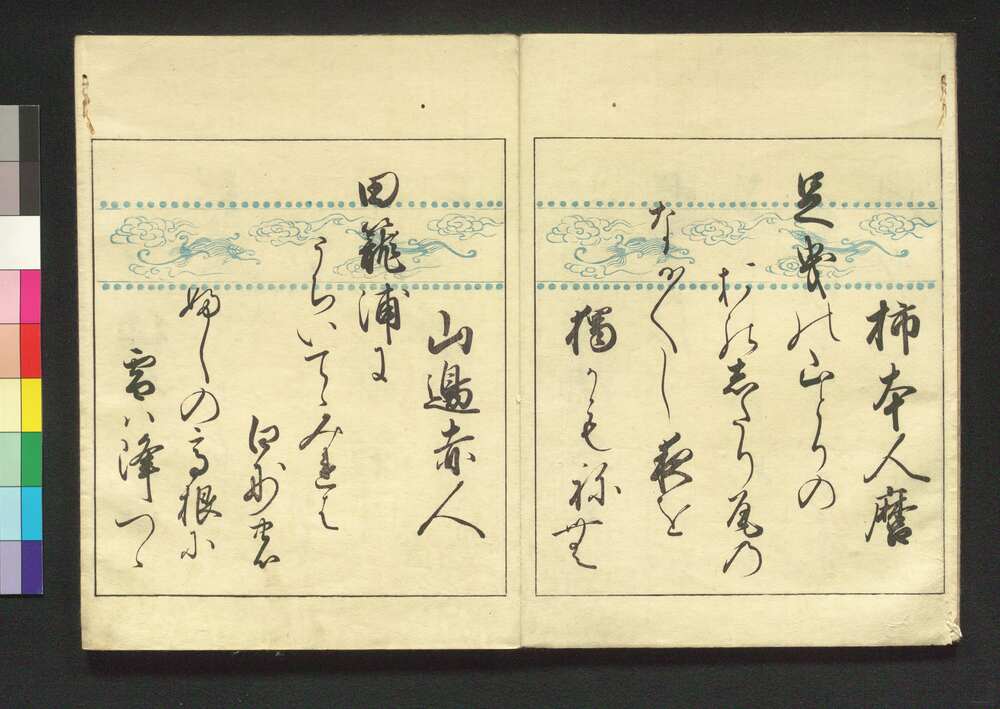 柿本人麿
足曳の山とりの
おのしたり尾の
なか〱し夜を
獨かもねむ
山邊赤人
田籠浦に
うちいてゝみれは
白妙の
婦しの高根に
雪ハ降つゝ